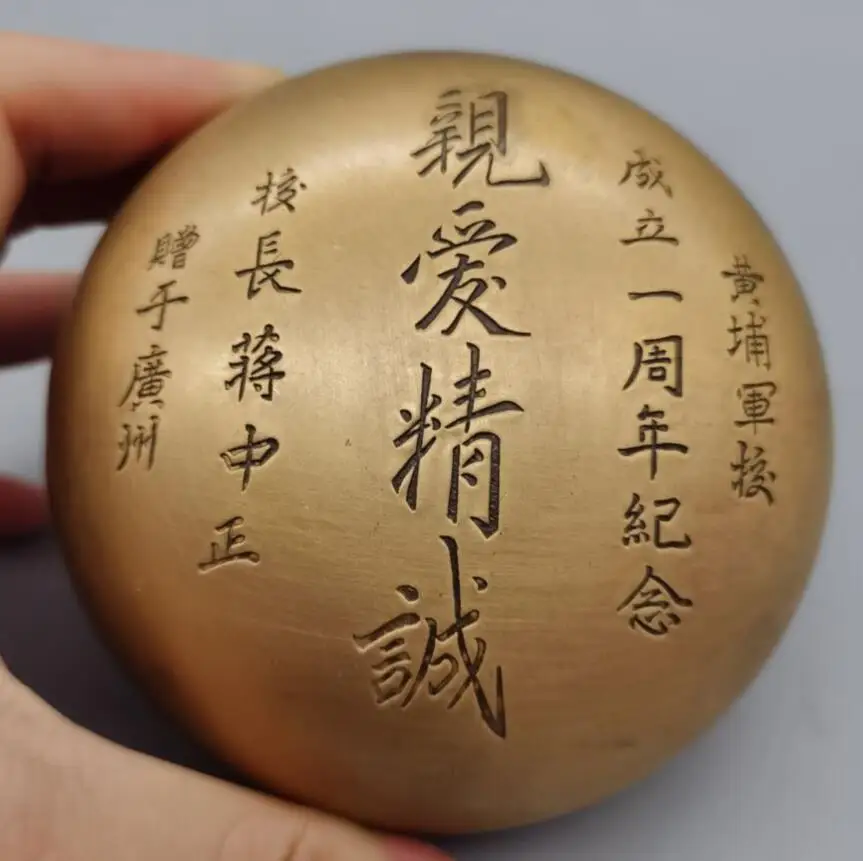 黄埔軍校
成立一周年紀念
親愛精誠
校長蔣中正
贈于廣州